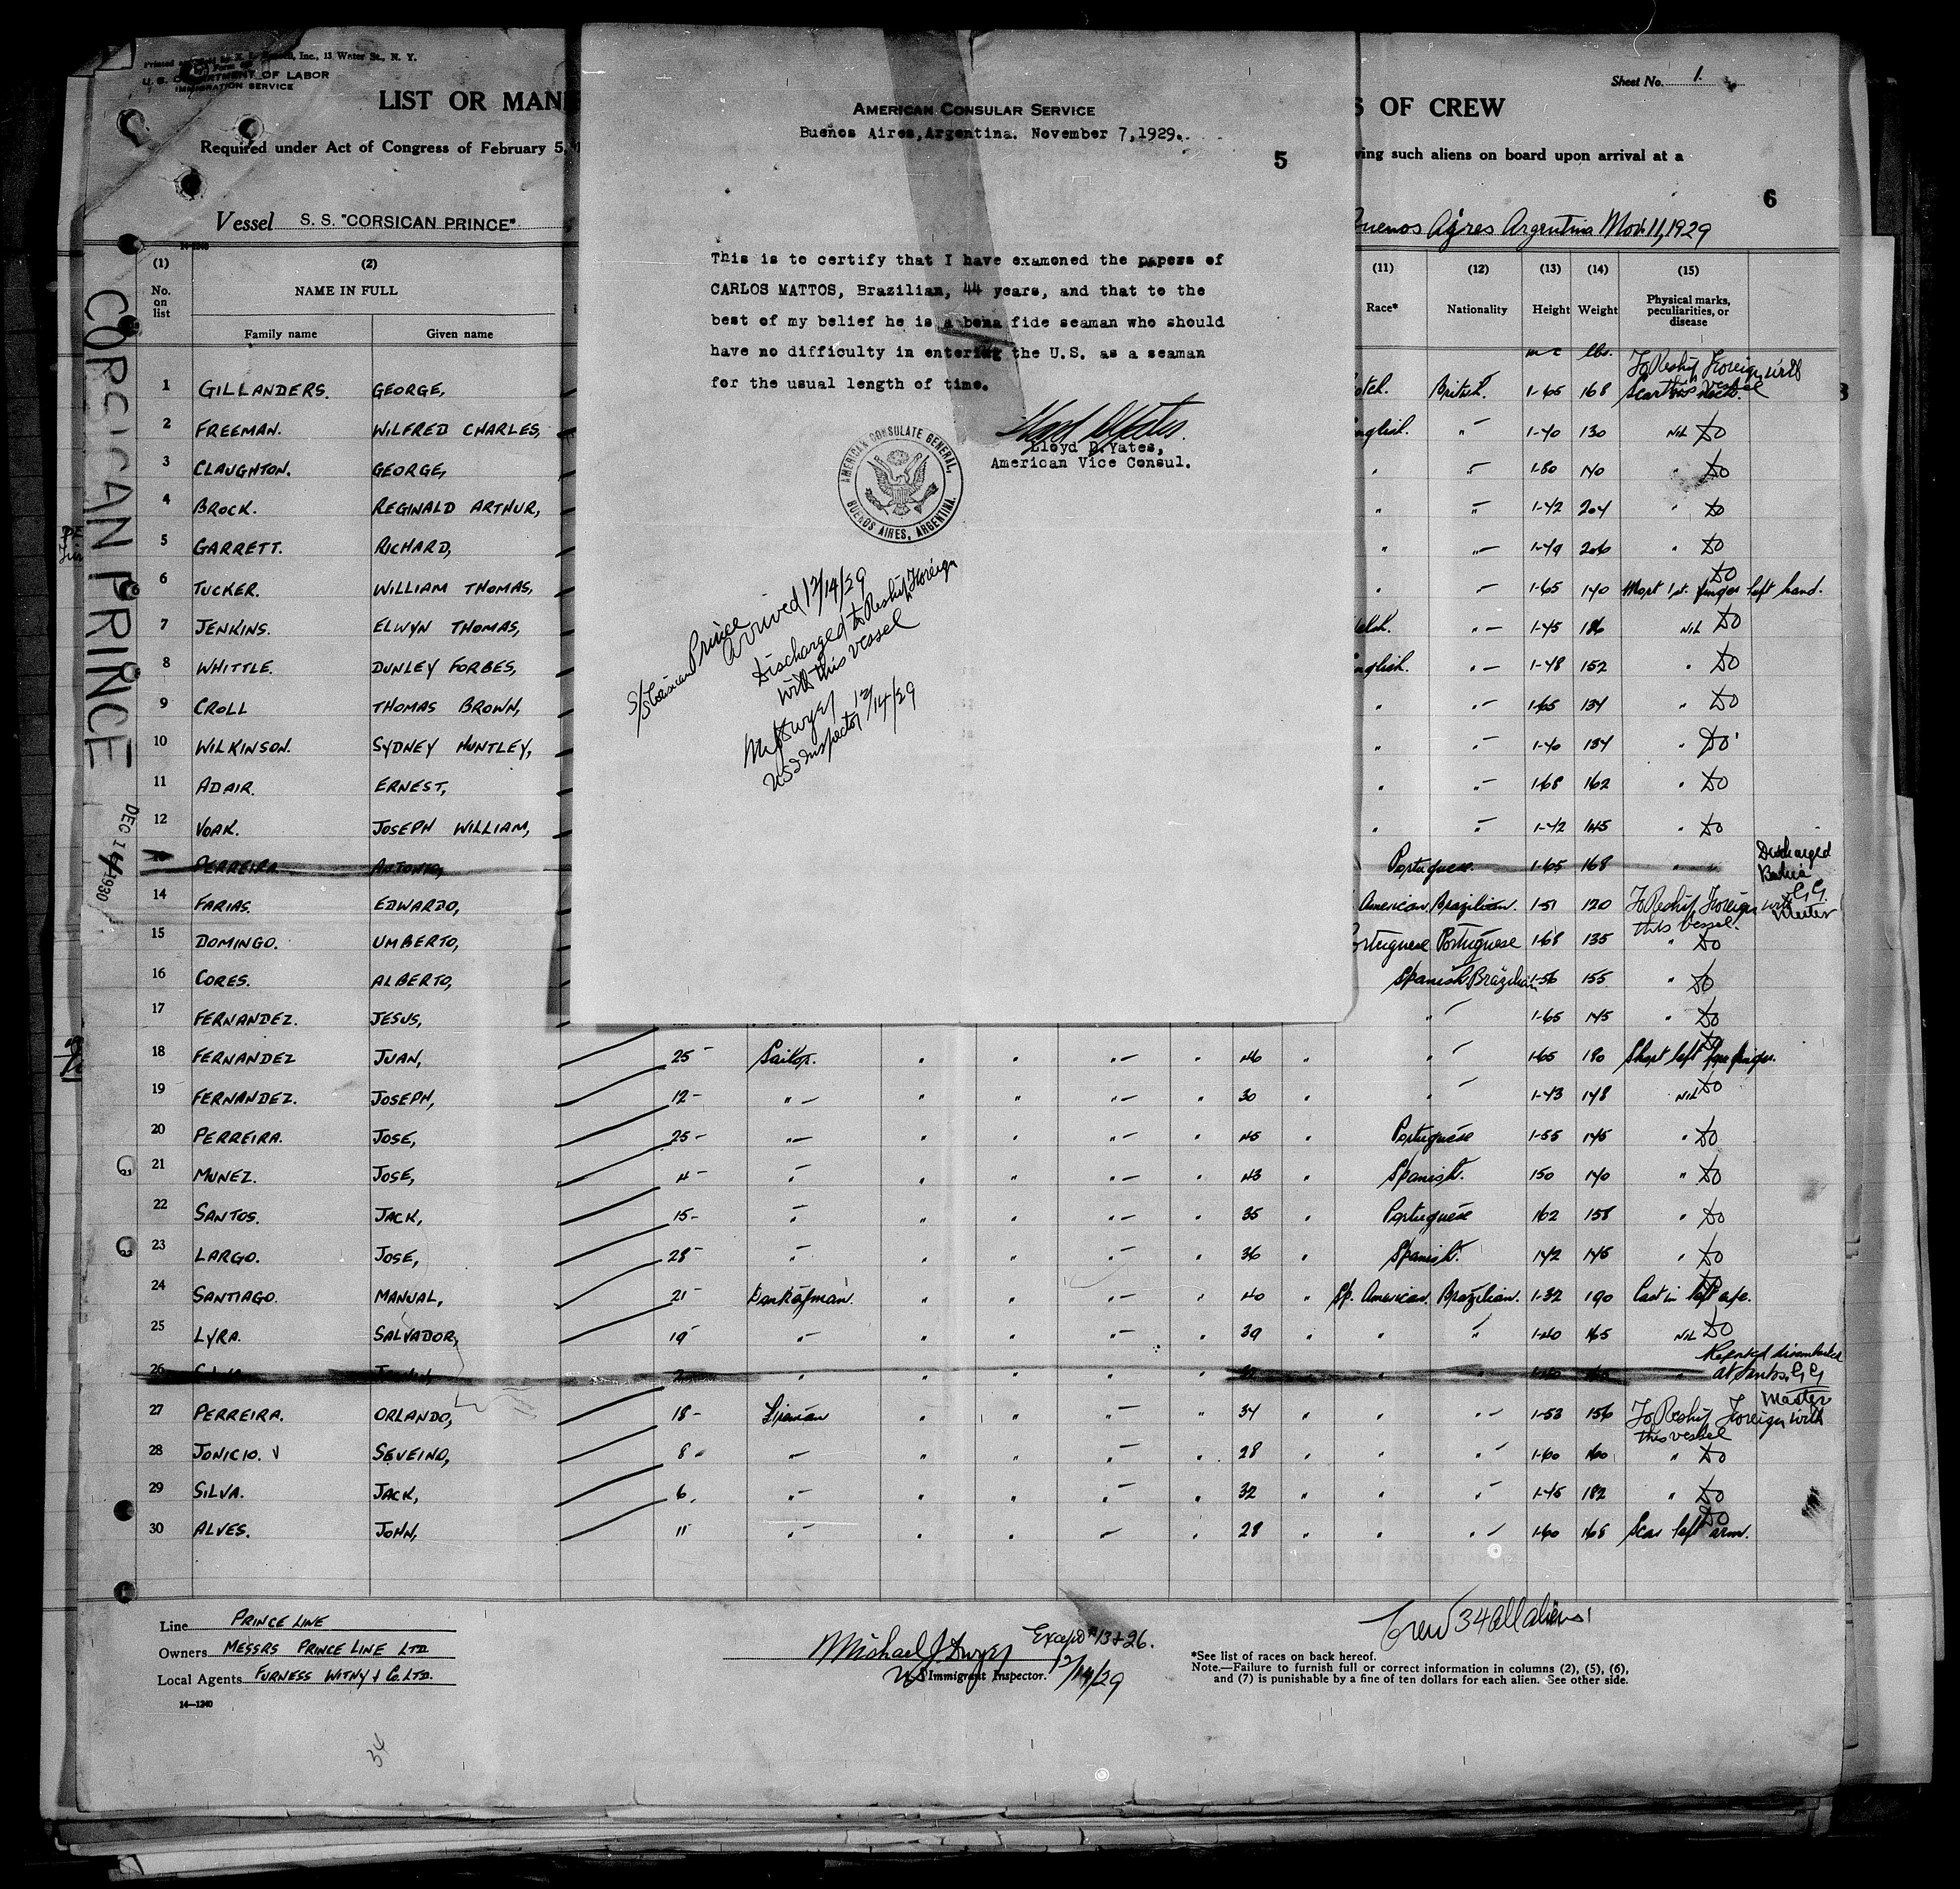 Inc., 13 Water St., N. Y.
U. S. DEPARTMENT OF LABOR
IMMIGRATION SERVICE
LIST OR MAN
Required under Act of Congress of February 5,
Vessel S. S. "CORSICAN PRINCE"
AMERICAN CONSULAR SERVICE
Buenos Aires,Argentina. November 7,1929.
5
This is to certify that I have examoned the papers of
CARLOS MATTOS, Brazilian, 44 years, and that to the
best of my belief he is a bona fide seaman who should
have no difficulty in entering the U.S. as a seaman
for the usual length of time.
Lloyd D. Yates,
American Vice Consul.
AMERICAN CONSULATE GENERAL,
BUENOS AIRES, ARGENTINA.
S/S Corsican Prince
Arrived 12/14/29
Discharged to Reship Foreign
with this vessel
M J Dwyer 12/14/29
US Inspector
Sheet No. 1.
S OF CREW
ving such aliens on board upon arrival at a
6
Buenos Ayres Argentina Nov. 11, 1929
CORSICAN PRINCE
DEC 14 1930
(1) (2) (11) (12) (13) (14) (15)
No. on list NAME IN FULL Race* Nationality Height Weight Physical marks, peculiarities, or disease
Family name Given name
lbs.
To Reship Foreign with
this vessel
1 GILLANDERS. GEORGE, otch. British. 1-65 168
2 FREEMAN. WILFRED CHARLES, nglish. " 1-40 130 NIL DO
3 CLAUGHTON. GEORGE, " " 1-80 140 DO
4 BROCK. REGINALD ARTHUR, " " 1-42 204 " DO
5 GARRETT. RICHARD, " " 1-49 206 " DO
6 TUCKER. WILLIAM THOMAS, " " 1-65 140 DO 1st. finger left hand.
7 JENKINS. ELWYN THOMAS, elsh. " 1-45 186 NIL DO
8 WHITTLE. DUNLEY FORBES, nglish. " 1-48 152 " DO
9 CROLL THOMAS BROWN, " " 1-65 134 " DO
10 WILKINSON. SYDNEY HUNTLEY, " " 1-40 134 " DO
11 ADAIR. ERNEST, " " 1-68 162 " DO
12 VOAK. JOSEPH WILLIAM, " " 1-42 145 " DO
13 PERREIRA ANTONIO, Portuguese. 1-65 168 " Discharged Bahia G G Master
14 FARIAS. EDWARDO, American Brazilian. 1-51 120 To Reship Foreign with this vessel.
15 DOMINGO. UMBERTO, ortuguese Portuguese 1-68 135 " DO
16 CORES. ALBERTO, Spanish Brazilian 1-56 155 " DO
17 FERNANDEZ. JESUS, " " 1-65 145 " DO
18 FERNANDEZ JUAN, 25 Sailor. " " " 46 " " " 1-65 190 DO Short left fore finger.
19 FERNANDEZ. JOSEPH, 12 " " " " " 30 " " " 1-43 148 NIL DO
20 PERREIRA. JOSE, 25 " " " " " 45 " Portuguese 1-55 145 " DO
21 MUNEZ. JOSE, 4 " " " " " 43 " Spanish. 150 140 " DO
22 SANTOS. JACK, 15 " " " " " 35 " Portuguese 162 158 " DO
23 LARGO. JOSE, 28 " " " " " 36 " Spanish. 142 145 " DO
24 SANTIAGO. MANUAL, 21 Donkeyman. " " " " 40 " Sp. American. Brazilian. 1-32 190 DO Cast in left eye.
25 LYRA. SALVADOR, 19 " " " " " 39 " " " 1-40 165 NIL DO
26 " " " " " " Reported disembarked at Santos, G G Master
27 PERREIRA. ORLANDO, 18 Fireman " " " " 34 " " " 1-53 156 To Reship Foreign with this vessel
28 JONICIO. SEVEIND, 8 " " " " " 28 " " " 1-60 160 " DO
29 SILVA. JACK, 6. " " " " " 32 " " " 1-45 182 " DO
30 ALVES. JOHN, 11 " " " " " 28 " " " 1-60 168 DO Scar left arm.
Line PRINCE LINE
Owners MESSRS PRINCE LINE LTD.
Local Agents FURNESS WITHY & CO. LTD.
14—1240
Michael J Dwyer Except # 13 & 26.
US Immigrant Inspector. 12/14/29
Crew 34 all aliens
*See list of races on back hereof.
Note.—Failure to furnish full or correct information in columns (2), (5), (6),
and (7) is punishable by a fine of ten dollars for each alien. See other side.
34